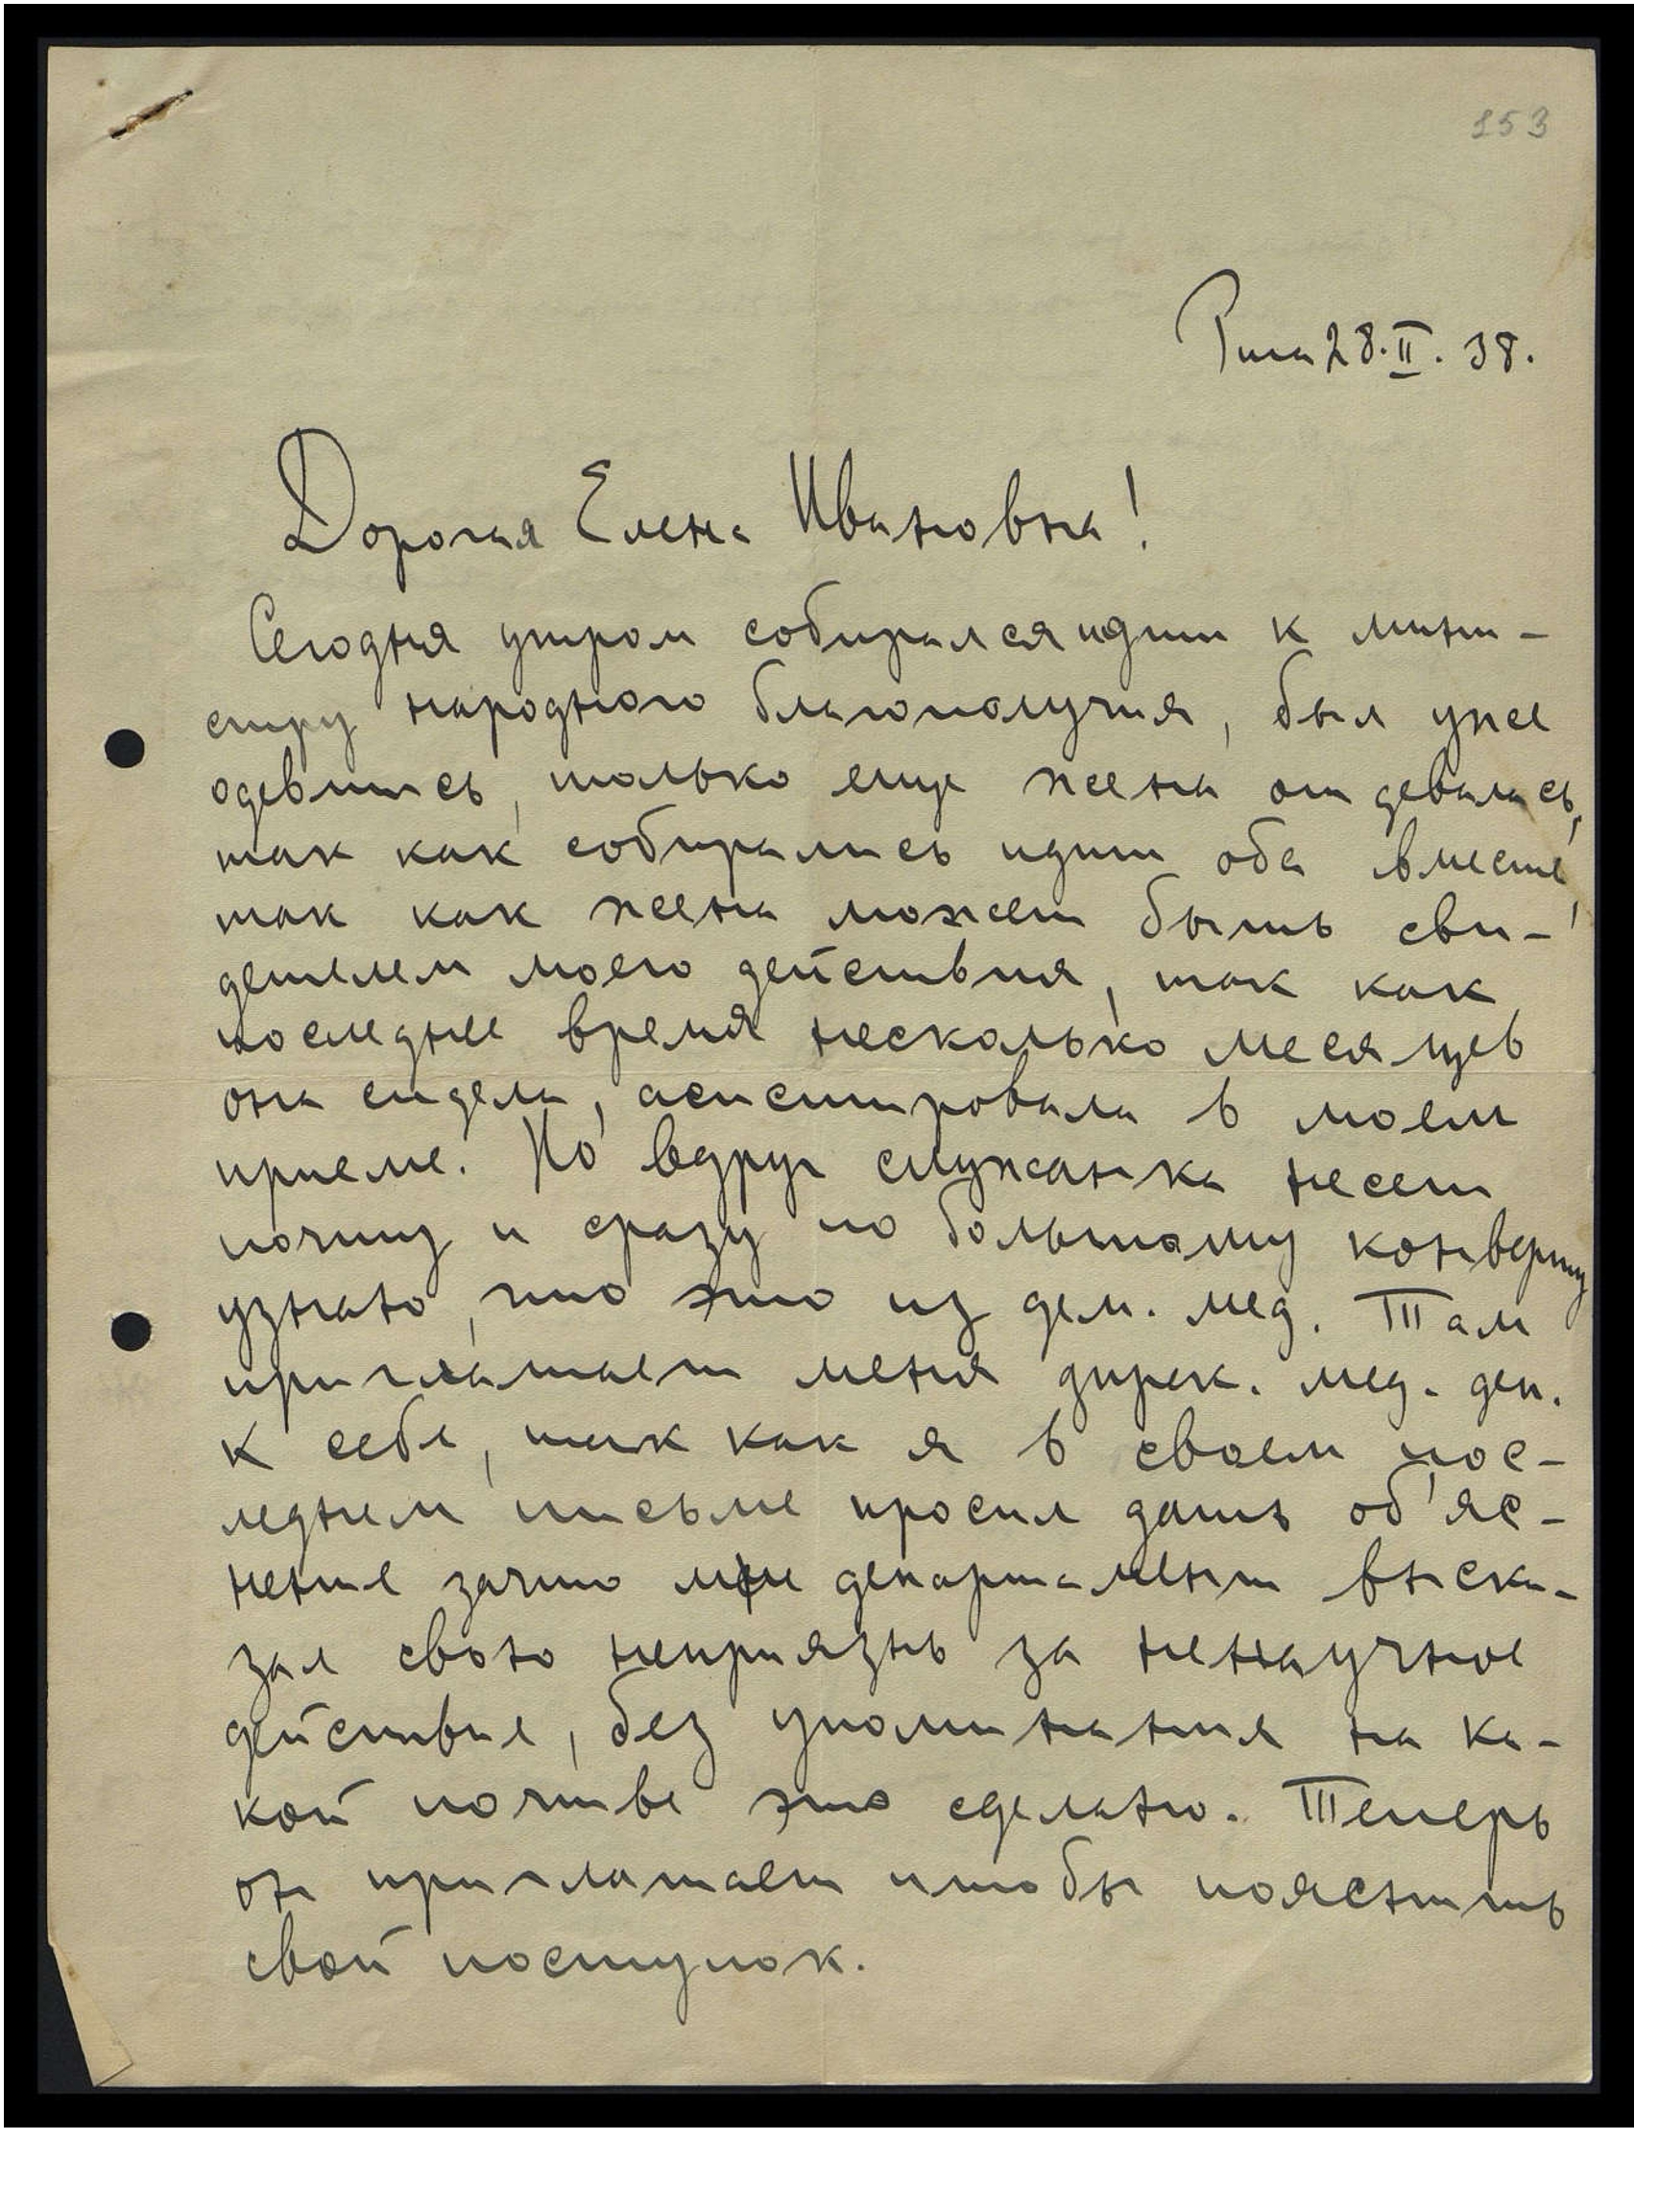 153
Рига 28.II.38.
Дорогая Елена Ивановна!
Сегодня утром собирался идти к мини-
стру народного благополучия, был уже
одевшись, только еще жена отдевалась,
так как собирались идти оба вместе,
так как жена может быть сви-
детелем моего действия, так как
последнее время несколько месяцев
она сидела, асистировала в моем
приеме. Но вдруг служанка несет
почту и сразу по большому конверту
узнаю, что это из деп. мед. Там
приглашает меня дирек. мед. деп.
к себе, так как я в своем пос-
леднем письме просил дать об'яс-
нение зачто мне департамент выска-
зал свою неприязнь за ненаучное
действие, без упоминания на ка-
кой почтве это сделано. Теперь
он приглашает чтобы пояснить
свой поступок.